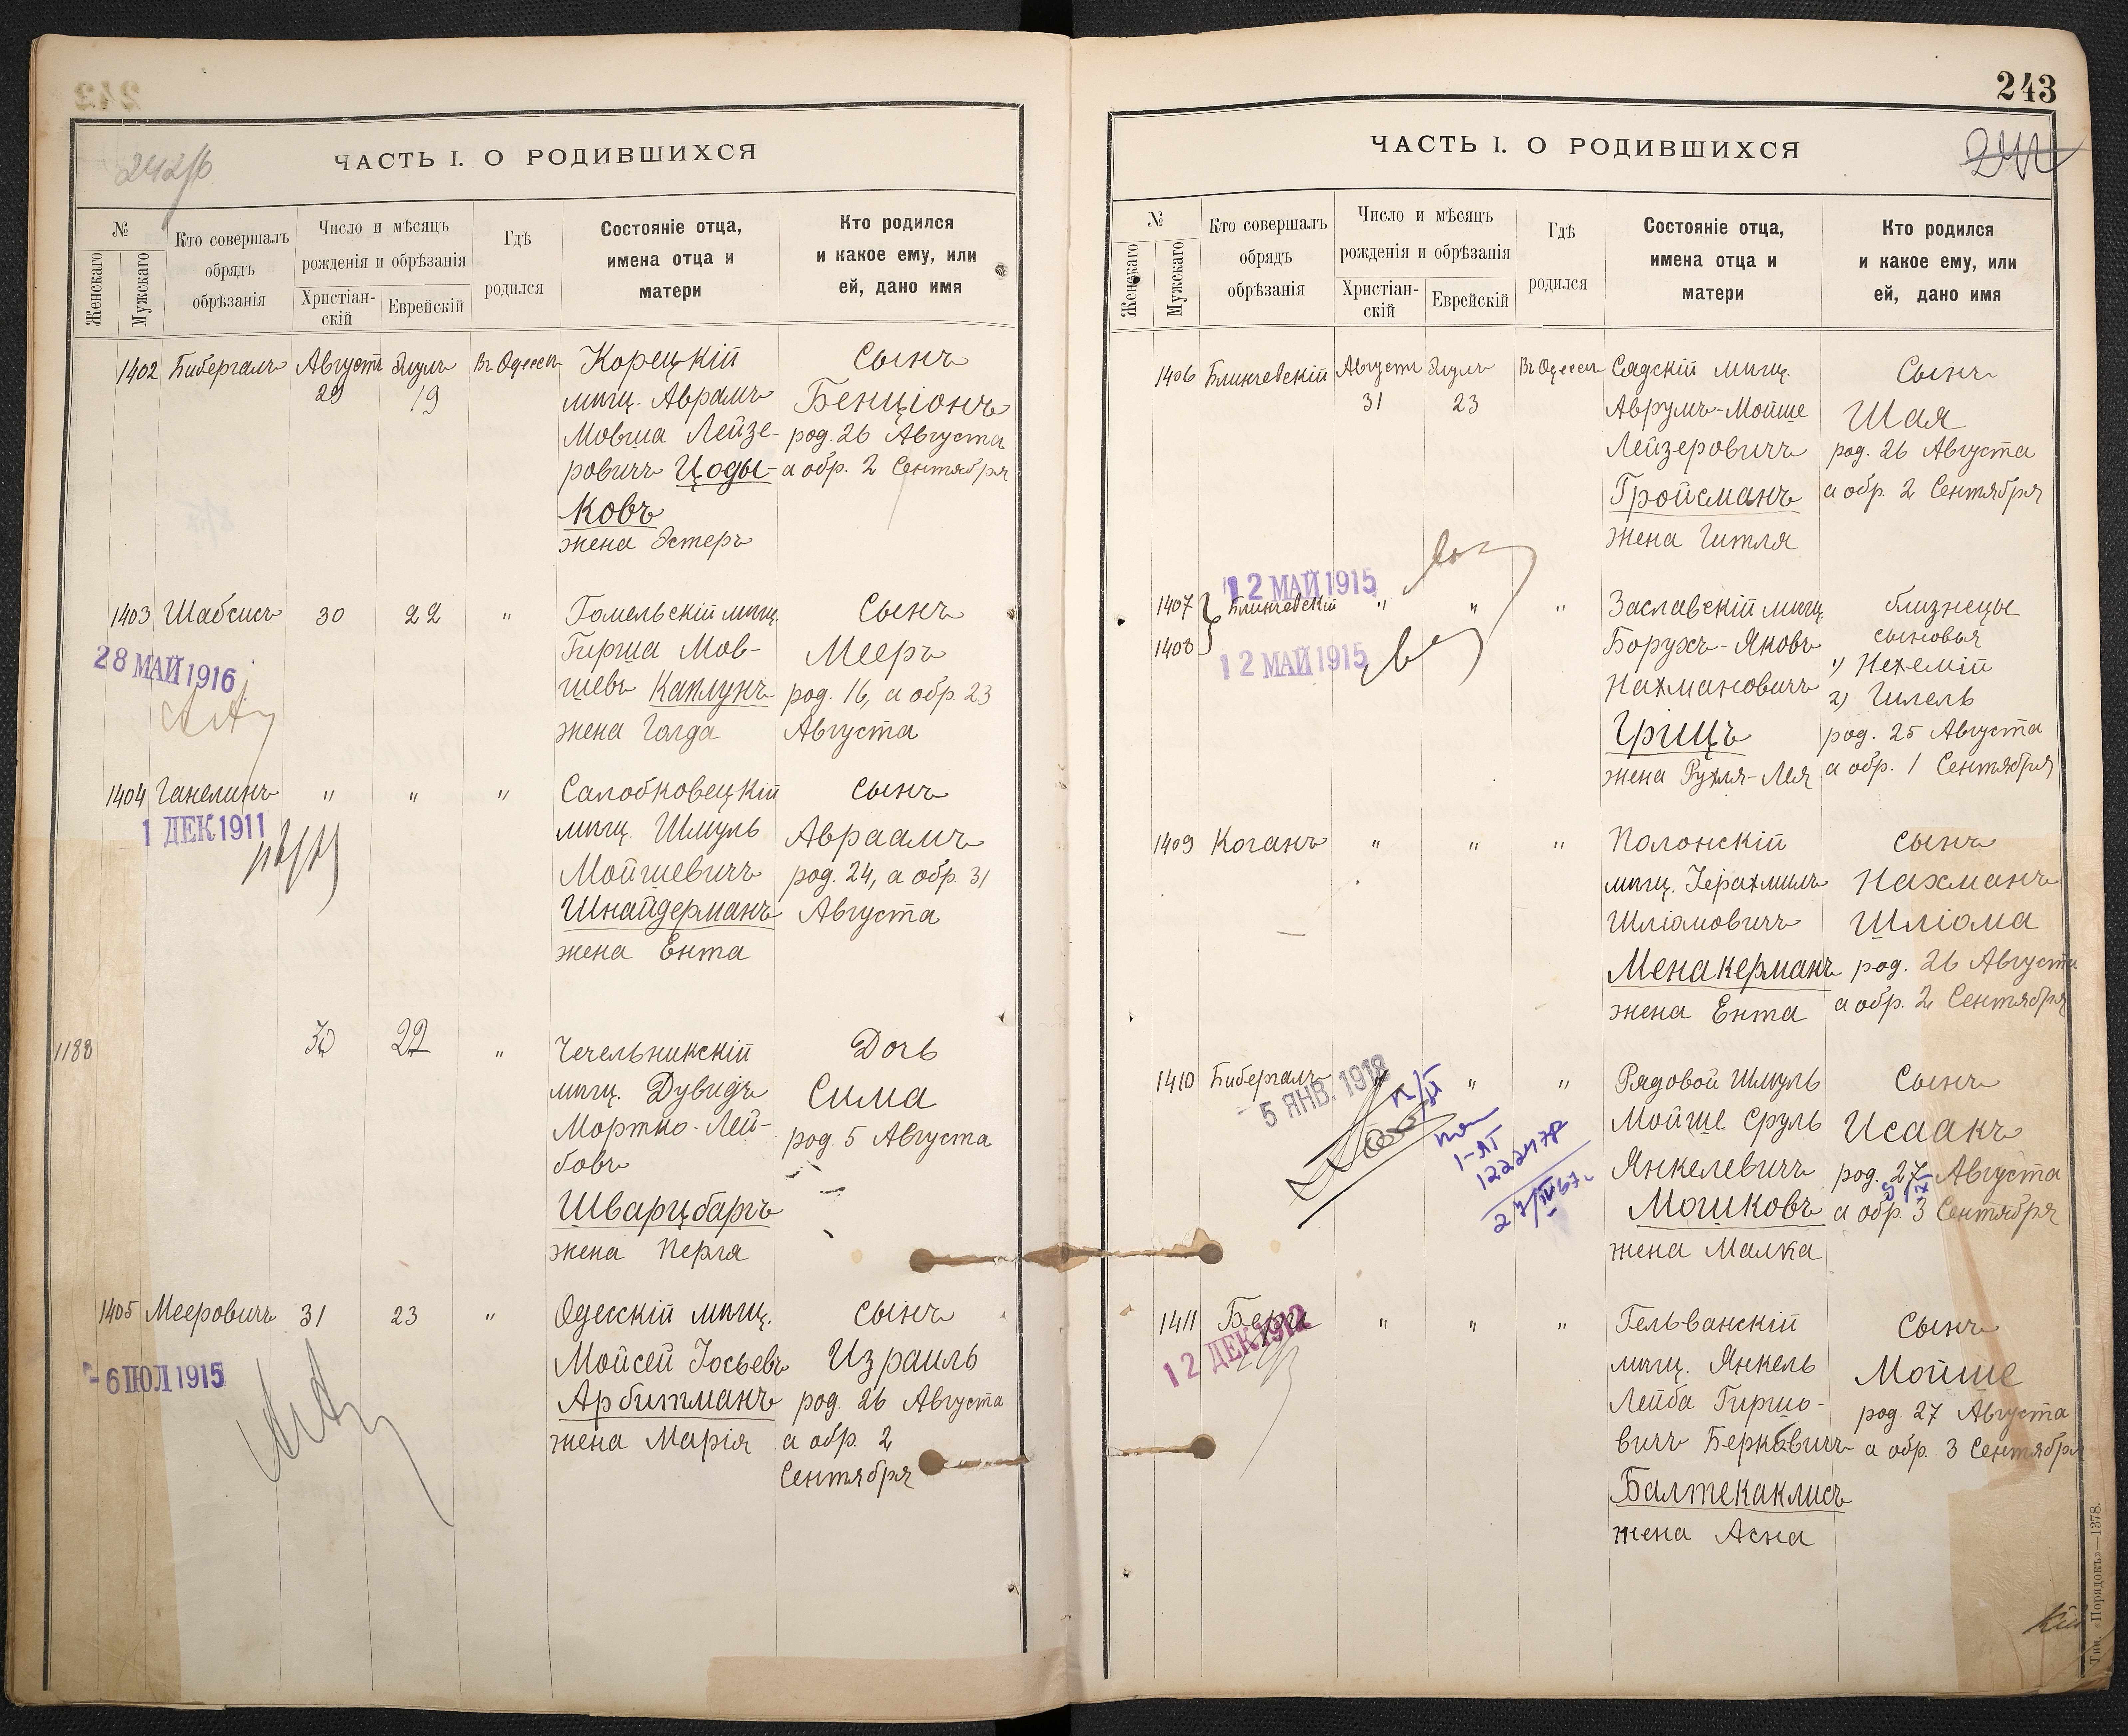 242/б
ЧАСТЬ I. О РОДИВШИХСЯ
№
Женскаго
Мужскаго
Кто совершалъ
обрядъ
обрѣзанія
Число и мѣсяцъ
рожденія и обрѣзанія
Христіан-
скій
Еврейскій
Гдѣ
родился
Состояніе отца,
имена отца и
матери
Кто родился
и какое ему, или
ей, дано имя
1402 Бибергалъ Августъ 29 Элулъ 19 Въ Одессѣ
Корецкій
мѣщ. Аврамъ
Мовша Лейзе-
ровичъ Цоды-
ковъ
жена Эстеръ
Сынъ
Бенціонъ
род. 26 Августа
а обр. 2 Сентября
1403 Шабсисъ 30 22 "
Гомельскій мѣщ.
Гирша Мов-
шевъ Каплунъ
жена Голда
Сынъ
Мееръ
род. 16, а обр. 23
Августа
28 МАЙ 1916
1404 Ганелинъ " " "
Салобковецкій
мѣщ. Шмуль
Мойшевичъ
Шнайдерманъ
жена Ента
Сынъ
Авраамъ
род. 24, а обр. 31
Августа
1 ДЕК 1911
1188 30 22 "
Чечельникскій
мѣщ. Дувидъ
Мортко-Лей-
бовъ
Шварцбаргъ
жена Перля
Дочь
Сима
род. 5 Августа
1405 Мееровичъ 31 23 "
Одесскій мѣщ.
Мойсей Іосьевъ
Арбитманъ
жена Марія
Сынъ
Израиль
род. 26 Августа
а обр. 2
Сентября
- 6 ІЮЛ 1915
243
ЧАСТЬ I. О РОДИВШИХСЯ
№
Женскаго
Мужскаго
Кто совершалъ
обрядъ
обрѣзанія
Число и мѣсяцъ
рожденія и обрѣзанія
Христіан-
скій
Еврейскій
Гдѣ
родился
Состояніе отца,
имена отца и
матери
Кто родился
и какое ему, или
ей, дано имя
1406 Блинчевскій Августъ 31 Элулъ 23 Въ Одессѣ
Сядскій мѣщ.
Аврумъ-Мойше
Лейзеровичъ
Гройсманъ
жена Гитля
Сынъ
Шая
род. 26 Августа
а обр. 2 Сентября
12 МАЙ 1915
1407 Блинчевскій " " "
1408
12 МАЙ 1915
Заславскій мѣщ.
Борухъ-Яковъ
Нахмановичъ
Грицъ
жена Рухля-Лея
близнецы
сыновья
1) Нехемій
2) Гилель
род. 25 Августа
а обр. 1 Сентября
1409 Коганъ " " "
Полонскій
мѣщ. Іерахмилъ
Шліомовичъ
Менакерманъ
жена Ента
Сынъ
Нахманъ
Шліома
род. 26 Августа
а обр. 2 Сентября
1410 Бибергалъ " " "
5 ЯНВ. 1918
Рядовой Шмуль
Мойше Сруль
Янкелевичъ
Мошковъ
жена Малка
Сынъ
Исаакъ
род. 27 Августа
а обр. 3 Сентября
1411 Бергъ " " "
12 ДЕК 1912
Гельванскій
мѣщ. Янкель
Лейба Гиршо-
вичъ Берковичъ
Балтекаклисъ
жена Асна
Сынъ
Мойше
род. 27 Августа
а обр. 3 Сентября
Тип. «Порядокъ»—1378.